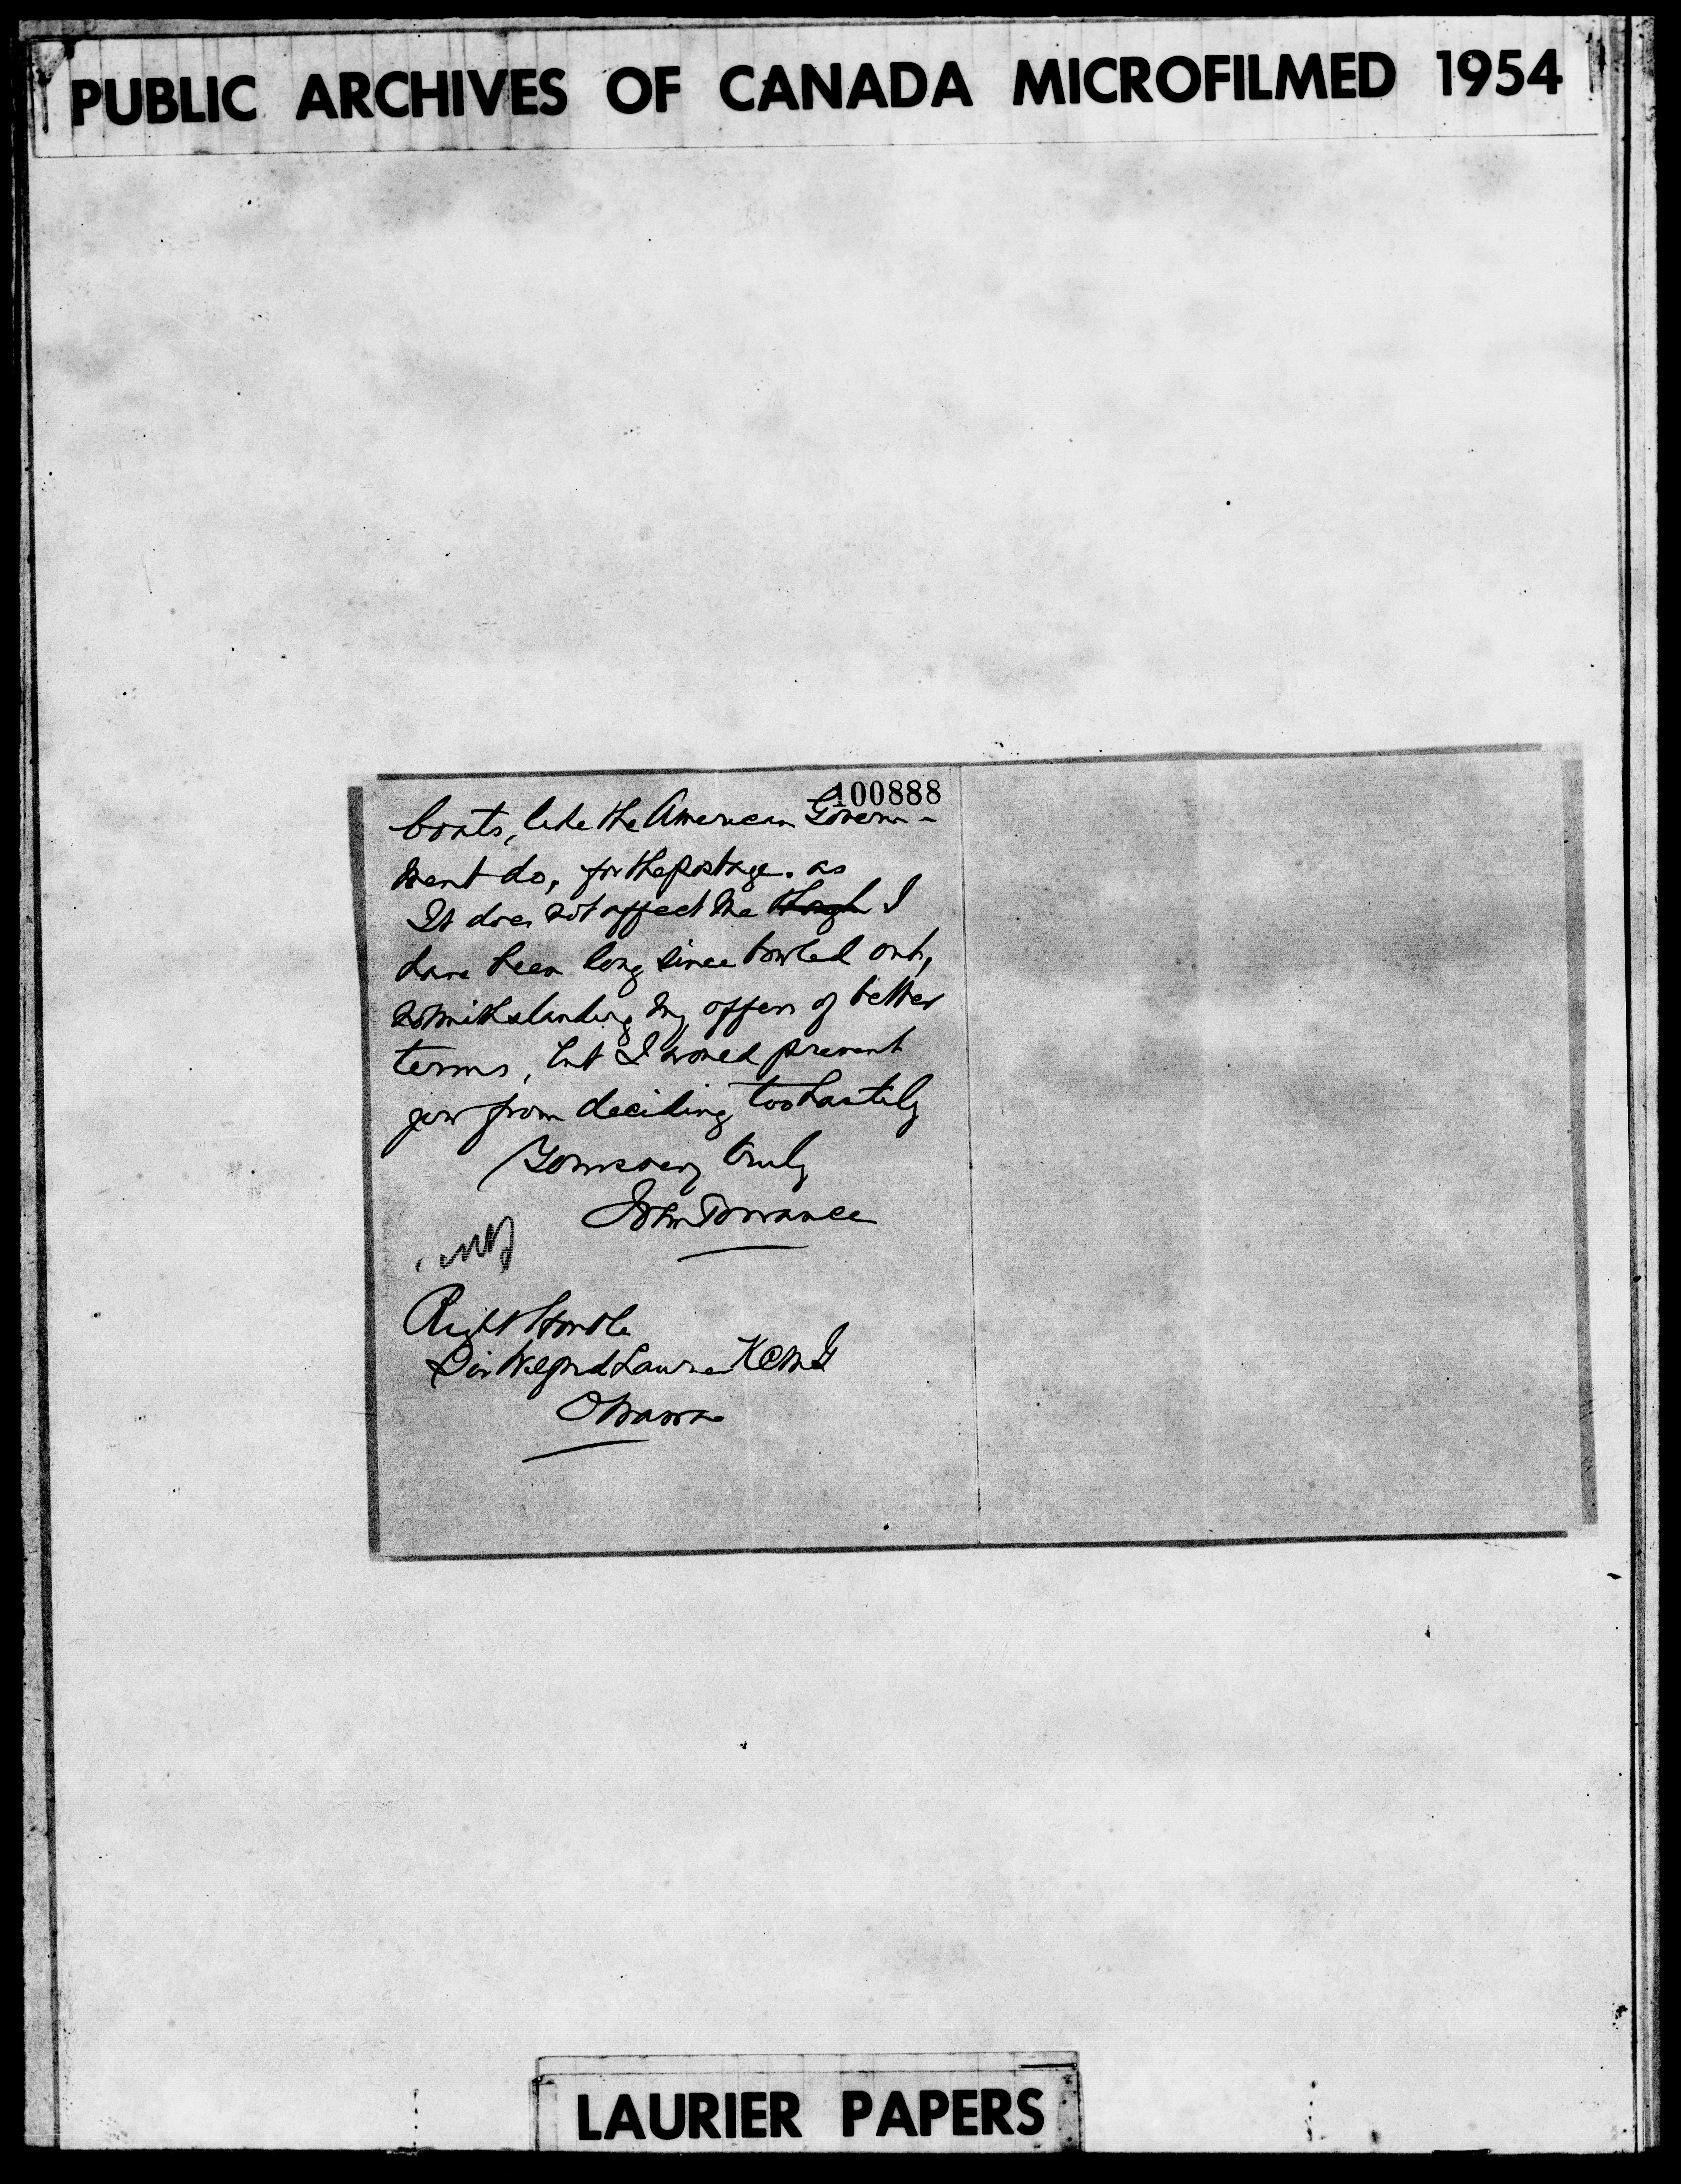 PUBLIC ARCHIVES OF CANADA MICROFILMED 1954
100888
boats, like the American Govern-
ment do, for the postage. as
It does not affect me though I
have been long since bowled out,
notwithstanding my offers of better
terms, but I would prevent
you from deciding too hastily
Yours very truly
John Torrance
Right Honble
Sir Wilfrid Laurier KCMG
Ottawa
LAURIER PAPERS